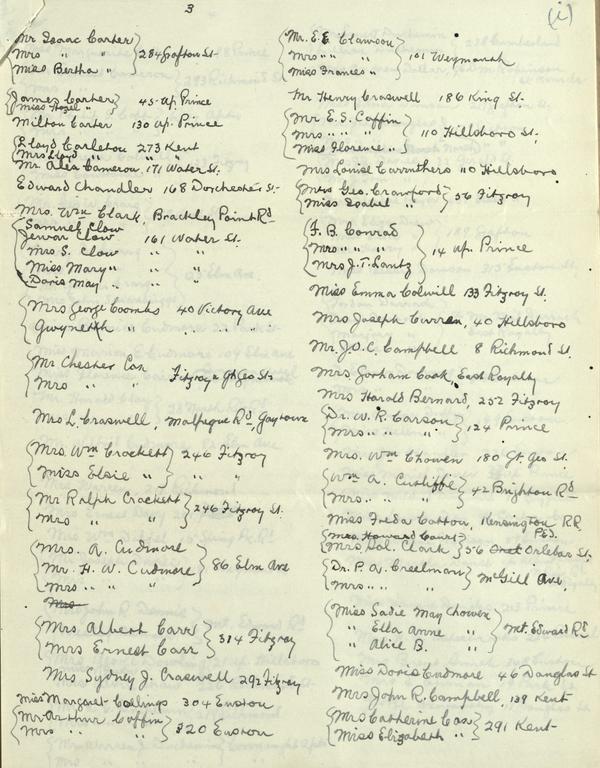 3
(i)
Mr Isaac Carter
Mrs " "
Miss Bertha "
284 Grafton St
James Carter
Miss Hazel "
45 Up. Prince
Milton Carter 130 Up. Prince
Lloyd Carleton 273 Kent
Mrs Lloyd " "
Mr. Alex Cameron, 171 Water St.
Edward Chandler 168 Dorchester St
Mrs. Wm Clark, Brackley Point Rd
Samuel Clow
Clow 161 Water St.
Mrs S. Clow " "
Miss Mary " " "
Doris May " " "
Mrs George Coombs 40 Victory Ave
Gwyneth " " " "
Mr Chester Cox
Mrs " "
Fitzroy & Gt Geo St.
Mrs L. Craswell, Malpeque Rd,
Mrs. Wm Crockett
Miss Elsie "
246 Fitzroy
Mr Ralph Crockett
Mrs " "
246 Fitzroy St.
Mrs. A. Cudmore
Mr. H. W. Cudmore
Mrs " " "
86 Elm Ave
Mrs
Mrs Albert Carr
Mrs Ernest Carr
314 Fitzroy
Mrs Sydney J. Craswell 292 Fitzroy
Miss Margaret Collings 304 Euston
Mr Arthur Coffin
Mrs " "
320 Euston
Mr. E.E. Clawson
Mrs " " "
Miss Frances "
101 Weymouth
Mr Henry Craswell 186 King St.
Mr E.S. Coffin
Mrs " " "
Miss Florence "
110 Hillsboro St.
Mrs Louise Carruthers 110 Hillsboro
Mrs Geo. Crawford
Miss Isabel "
56 Fitzroy
F. B. Conrad
Mrs " " "
Mrs J. T. Lantz
14 Up. Prince
Miss Emma Colwill 133 Fitzroy St.
Mrs Joseph Curran, 40 Hillsboro
Mr. J.O.C. Campbell 8 Richmond St.
Mrs Gorham Cook, East Royalty
Mrs Harold Bernard, 252 Fitzroy
Dr. W. R. Carson
Mrs " " "
124 Prince
Mrs. Wm Chowen 180 Gt. Geo St.
Wm A. Cutliffe
Mrs " " "
42 Brighton Rd
Miss Freda Cotton, Kensington RR
P.E.I.
Mrs. Howard Court
Mrs Sol. Clark
56 Orlebar St.
Dr. P. A. Creelman
Mrs " " "
McGill Ave.
Miss Sadie May Chowen
" Ella Anne "
" Alice B. "
Mt. Edward Rd
Miss Doris Cudmore 46 Douglas St
Mrs John R. Campbell, 139 Kent
Mrs Catherine Cox
Miss Elizabeth "
291 Kent